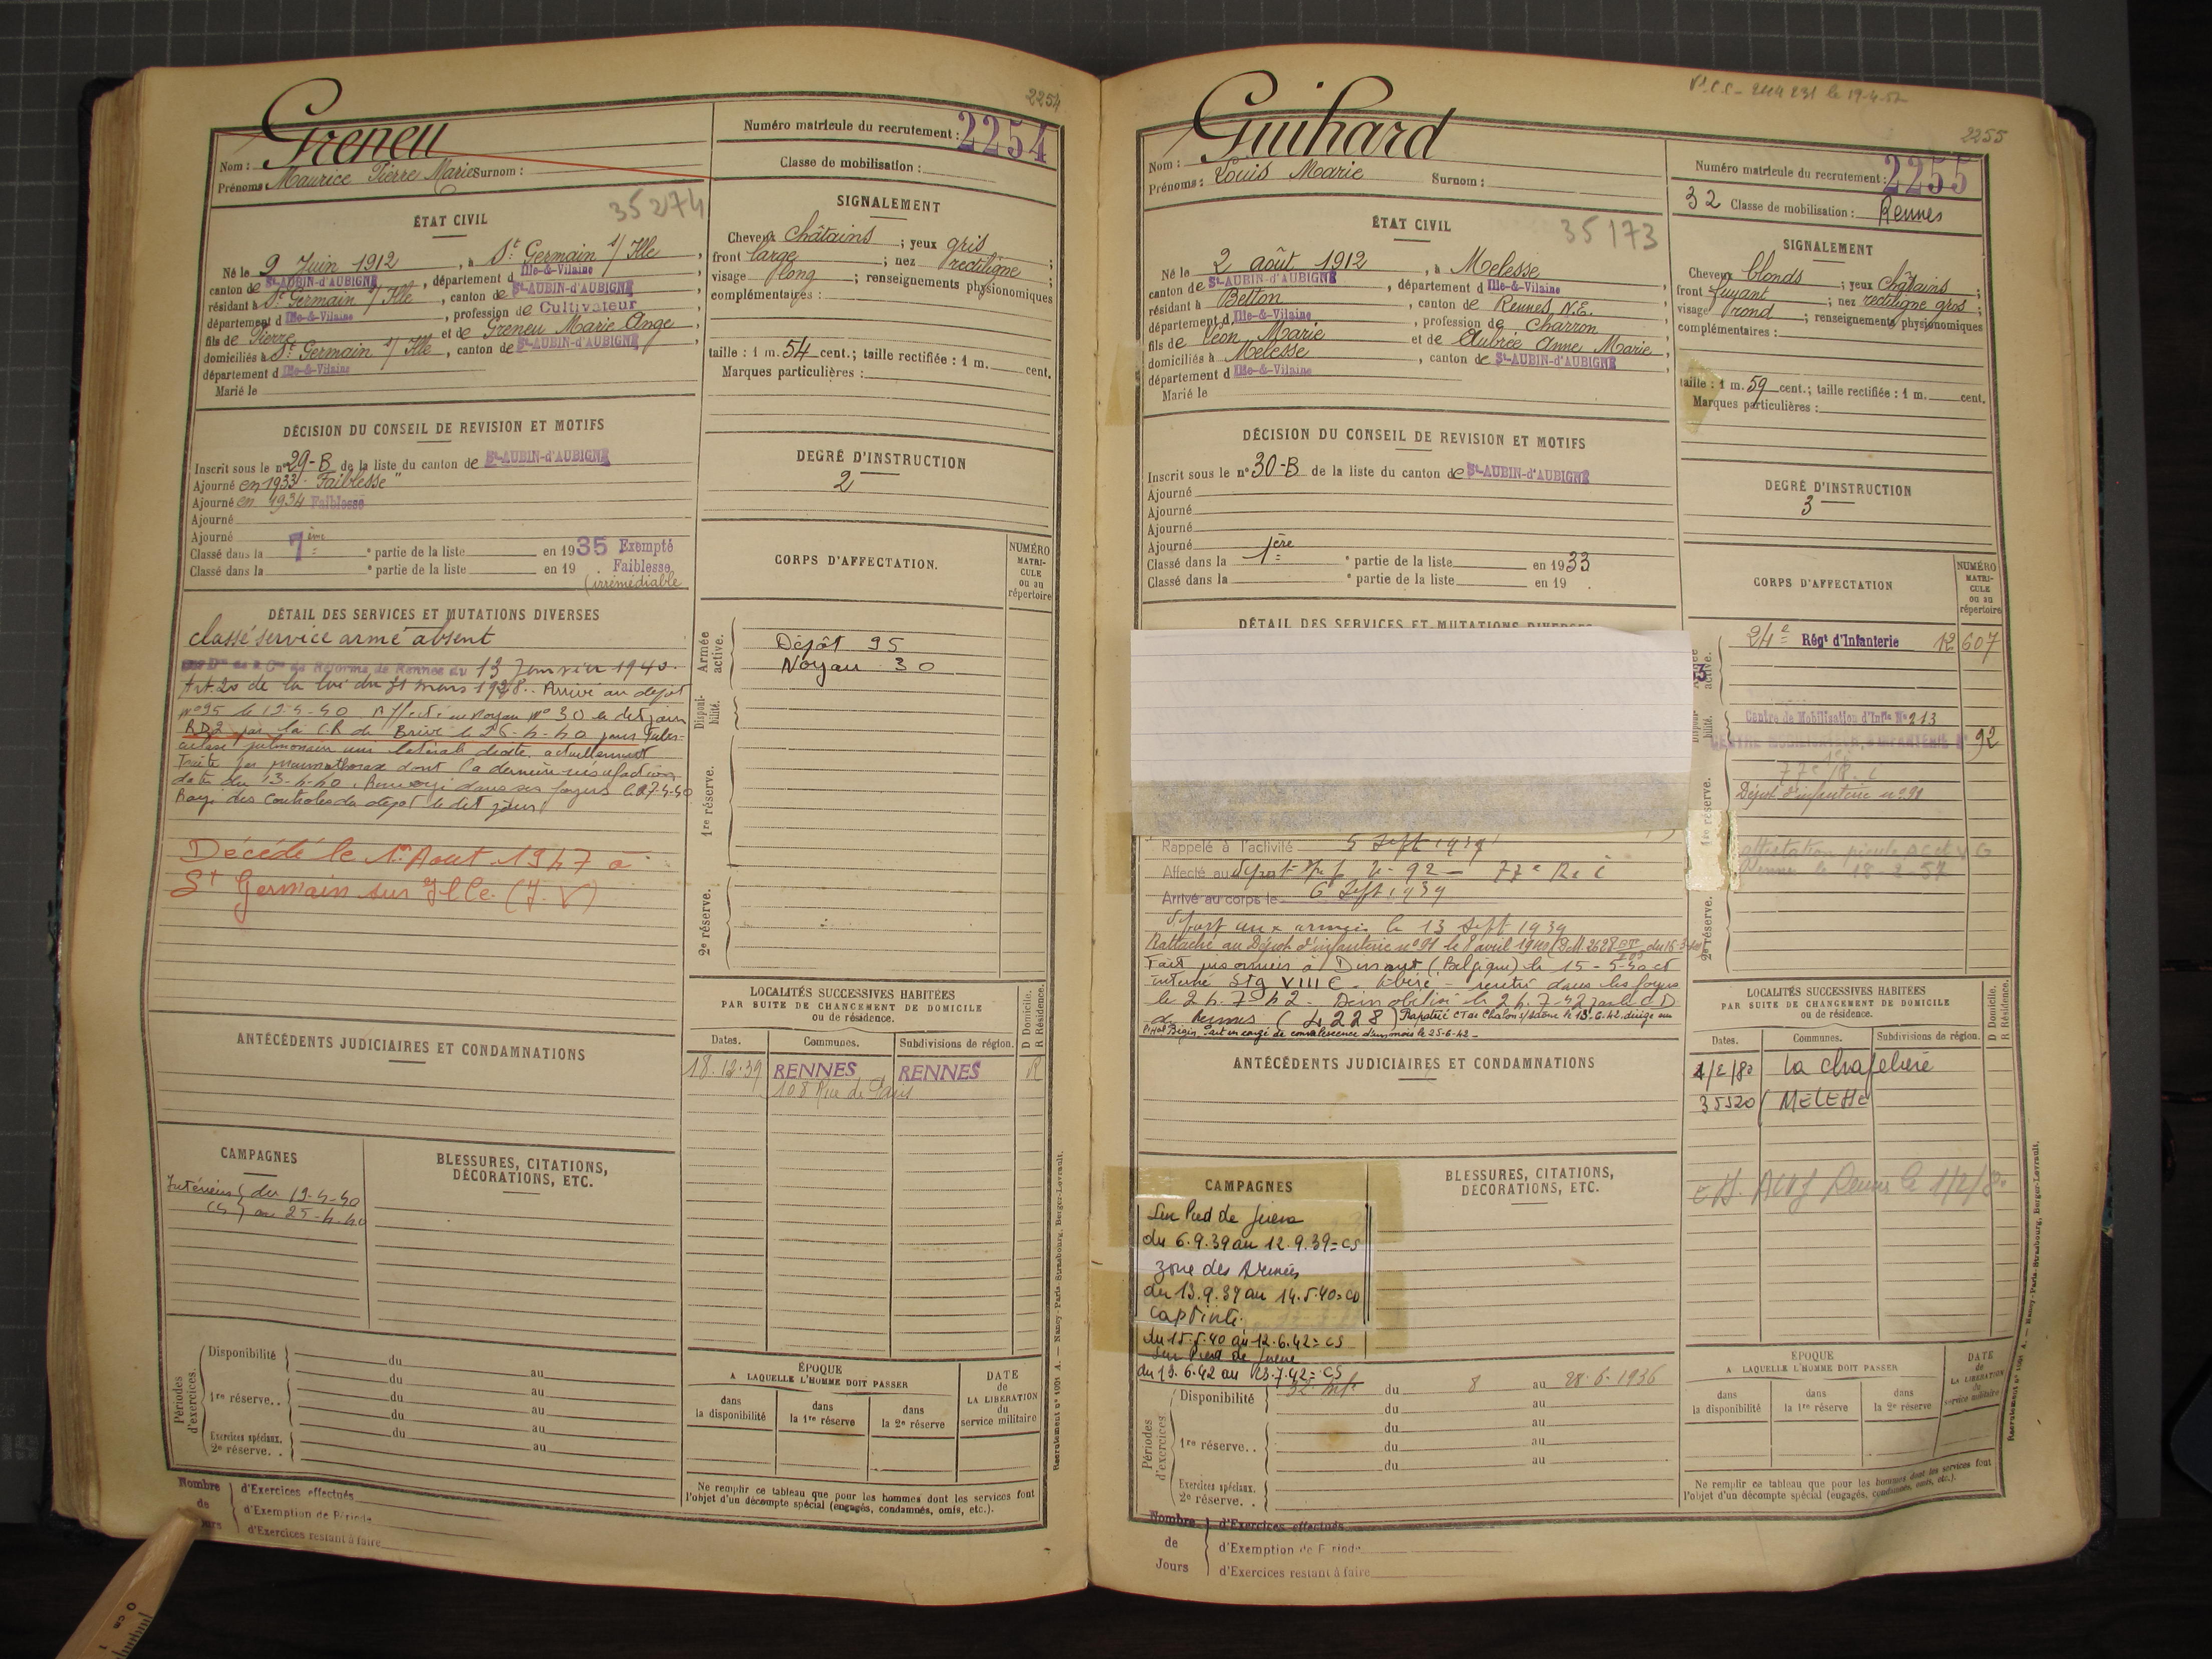 2254
Greneu
Nom :
Prénoms : Maurice Pierre Marie Surnom :
Numéro matricule du recrutement : 2254
Classe de mobilisation :
ÉTAT CIVIL
35274
Né le 9 Juin 1912, à St Germain s/ Ille,
canton de St-AUBIN-d'AUBIGNÉ, département d Ille-&-Vilaine
résidant à St Germain s/ Ille, canton de St-AUBIN-d'AUBIGNÉ,
département d Ille-&-Vilaine, profession de Cultivateur,
fils de Pierre et de Greneu Marie Ange,
domiciliés à St Germain s/ Ille, canton de St-AUBIN-d'AUBIGNÉ,
département d Ille-&-Vilaine
Marié le
SIGNALEMENT
Cheveux châtains ; yeux gris ;
front large ; nez rectiligne ;
visage long ; renseignements physionomiques
complémentaires :
taille : 1 m. 54 cent.; taille rectifiée : 1 m. cent.
Marques particulières :
DÉCISION DU CONSEIL DE REVISION ET MOTIFS
Inscrit sous le n° 29-B de la liste du canton de St-AUBIN-d'AUBIGNÉ
Ajourné en 1933 - Faiblesse"
Ajourné en 1934 Faiblesse
Ajourné
Ajourné
Classé dans la 7ème e partie de la liste en 1935 Exempté
Classé dans la e partie de la liste en 19 Faiblesse
(irrémédiable
DEGRÉ D'INSTRUCTION
2
CORPS D'AFFECTATION.
NUMÉRO MATRI-CULE ou au répertoire
Armée active.
Dépôt 95
Noyau 30
Disponi-bilité.
1re réserve.
2e réserve.
DÉTAIL DES SERVICES ET MUTATIONS DIVERSES
classé service armé absent
de Réforme de Rennes du 13 Janvier 1940.
Art. 20 de la loi du 31 mars 1928. Arrivé au dépôt
n° 95 le 19-4-40. Affecté au Noyau n° 30 le dit jour
RD2 par la C.R de Brive le 25-4-40 pour Tuber-
culose pulmonaire uni latérale droite actuellement
Traité par pneumothorax dont la dernière insufflation
date du 13-4-40. Renvoyé dans ses foyers le 27-4-40
Rayé des Controles du dépôt le dit jour.
Décédé le 1er Aout 1947 à
St Germain sur Ille. (I.V)
ANTÉCÉDENTS JUDICIAIRES ET CONDAMNATIONS
LOCALITÉS SUCCESSIVES HABITÉES
PAR SUITE DE CHANGEMENT DE DOMICILE
ou de résidence.
D Domicile. R Résidence.
Dates. Communes. Subdivisions de région.
18.12.39 RENNES RENNES R
108 Rue de Paris
CAMPAGNES
Intérieur ( du 19-4-40
(CS) au 25-4-40
BLESSURES, CITATIONS,
DÉCORATIONS, ETC.
Périodes d'exercices.
Disponibilité du au
du au
1re réserve.. du au
du au
Exercices spéciaux. du au
2e réserve. . au
ÉPOQUE
A LAQUELLE L'HOMME DOIT PASSER
dans la disponibilité
dans la 1re réserve
dans la 2e réserve
DATE de LA LIBÉRATION du service militaire
Ne remplir ce tableau que pour les hommes dont les services font
l'objet d'un décompte spécial (engagés, condamnés, omis, etc.).
Nombre de Jours
d'Exercices effectués
d'Exemption de Période
d'Exercices restant à faire
Recrutement n° 1091 A. — Nancy-Paris-Strasbourg, Berger-Levrault.
2255
Guihard
Nom :
Prénoms : Louis Marie Surnom :
Numéro matricule du recrutement : 2255
32 Classe de mobilisation : Rennes
ÉTAT CIVIL
35173
Né le 2 août 1912, à Melesse
canton de St-AUBIN-d'AUBIGNÉ, département d Ille-&-Vilaine
résidant à Betton, canton de Rennes N.E.
département d Ille-&-Vilaine, profession de charron
fils de Léon Marie et de Aubrée Anne Marie,
domiciliés à Melesse, canton de St-AUBIN-d'AUBIGNÉ,
département d Ille-&-Vilaine
Marié le
SIGNALEMENT
Cheveux blonds ; yeux châtains ;
front fuyant ; nez rectiligne gros ;
visage rond ; renseignements physionomiques
complémentaires :
taille : 1 m. 59 cent.; taille rectifiée : 1 m. cent.
Marques particulières :
DÉCISION DU CONSEIL DE REVISION ET MOTIFS
Inscrit sous le n° 30-B de la liste du canton de St-AUBIN-d'AUBIGNÉ
Ajourné
Ajourné
Ajourné
Ajourné
Classé dans la 1ère e partie de la liste en 1933
Classé dans la e partie de la liste en 19
DEGRÉ D'INSTRUCTION
3
CORPS D'AFFECTATION
NUMÉRO MATRI-CULE ou au répertoire
24e Régt d'Infanterie 12 607
Centre de Mobilisation d'Infie N° 213
CENTRE MOBILISATEUR D'INFANTERIE N° 92
77e R. i
Dépôt d'infanterie n° 91
1re réserve.
2e réserve.
DÉTAIL DES SERVICES ET MUTATIONS DIVERSES
Rappelé à l'activité 5 Sept 1939
Affecté au dépôt 92 - 77e R. i
Arrivé au corps le 6 Sept 1939
Départ aux armées le 13 Sept 1939
Rattaché au Dépôt d'infanterie n° 91 le 8 avril 1940
Fait prisonnier à Dinant (Belgique) le 15-5-40 et
interné Stg VIII C - Libéré - rentré dans ses foyers
le 24.7.42. Démobilisé le 24.7.42 par le C D
de Rennes (4228) Rapatrié CT de Chalon s/ Saône le 13.6.42. dirigé sur
Hopal Bégin. Part en congé de convalescence d'un mois le 25-6-42 -
ANTÉCÉDENTS JUDICIAIRES ET CONDAMNATIONS
LOCALITÉS SUCCESSIVES HABITÉES
PAR SUITE DE CHANGEMENT DE DOMICILE
ou de résidence.
D Domicile. R Résidence.
Dates. Communes. Subdivisions de région.
1/2/80 La chapelière
35520 MELESSE
CAMPAGNES
Sur Pied de guerre
du 6.9.39 au 12.9.39=CS
Zone des Armées
du 13.9.39 au 14.5.40=CD
Captivité.
du 15.5.40 au 12.6.42=CS
Sur Pied de guerre
du 13.6.42 au 25.7.42=CS
BLESSURES, CITATIONS,
DÉCORATIONS, ETC.
Périodes d'exercices.
Disponibilité du 8 au 28.6.1936
du au
1re réserve.. du au
du au
du au
Exercices spéciaux.
2e réserve. .
ÉPOQUE
A LAQUELLE L'HOMME DOIT PASSER
dans la disponibilité
dans la 1re réserve
dans la 2e réserve
DATE de LA LIBÉRATION du service militaire
Ne remplir ce tableau que pour les hommes dont les services font
l'objet d'un décompte spécial (engagés, condamnés, omis, etc.).
Nombre de Jours
d'Exercices effectués
d'Exemption de Période
d'Exercices restant à faire
Recrutement n° 1091 A. — Nancy-Paris-Strasbourg, Berger-Levrault.